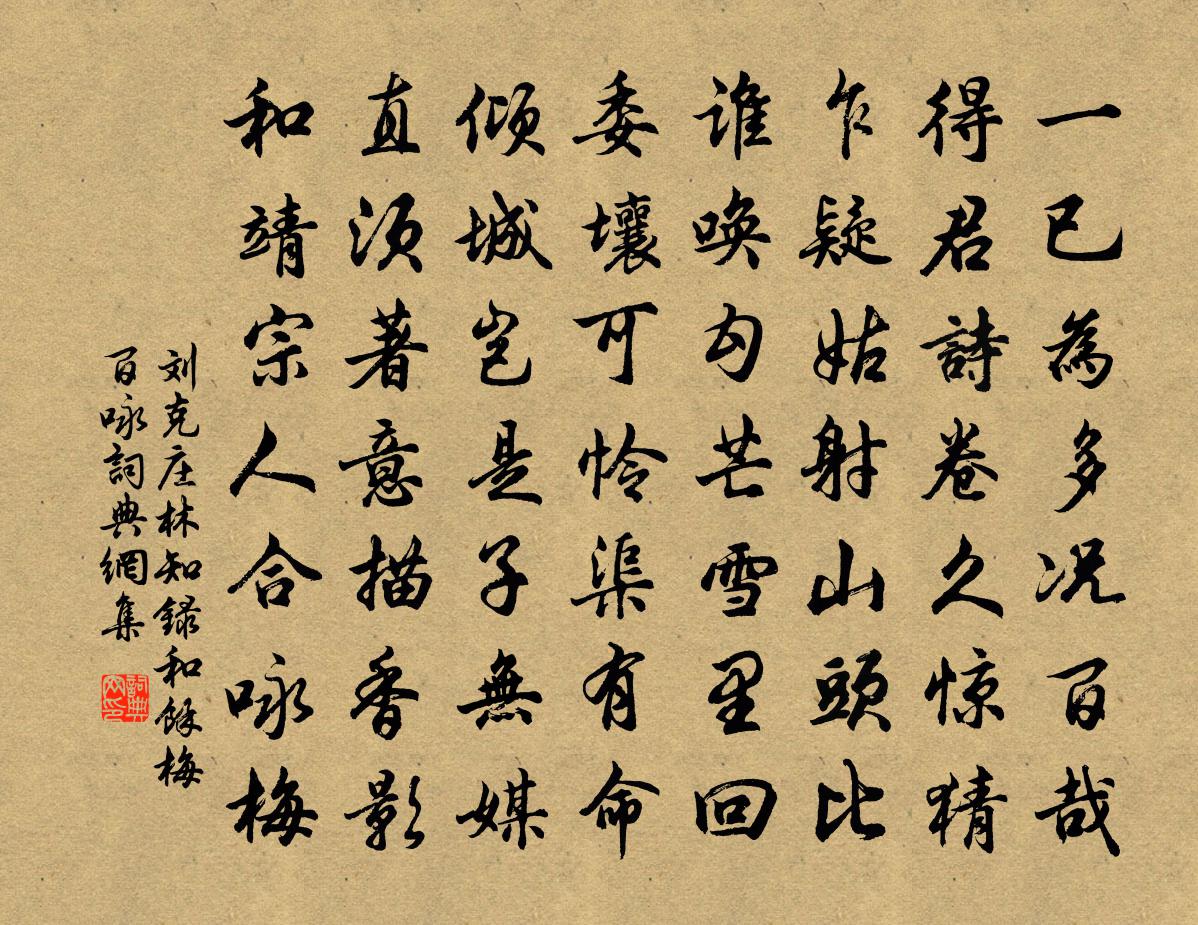 一已為多况百哉
得君詩卷久惊猜
乍疑姑射山頭比
谁唤勾芒雪里回
委壤可怜渠有命
倾城岂是子無媒
直须著意描香影
和靖宗人合咏梅
刘克庄林知録和餘梅
百咏詞典網集
詞典网印